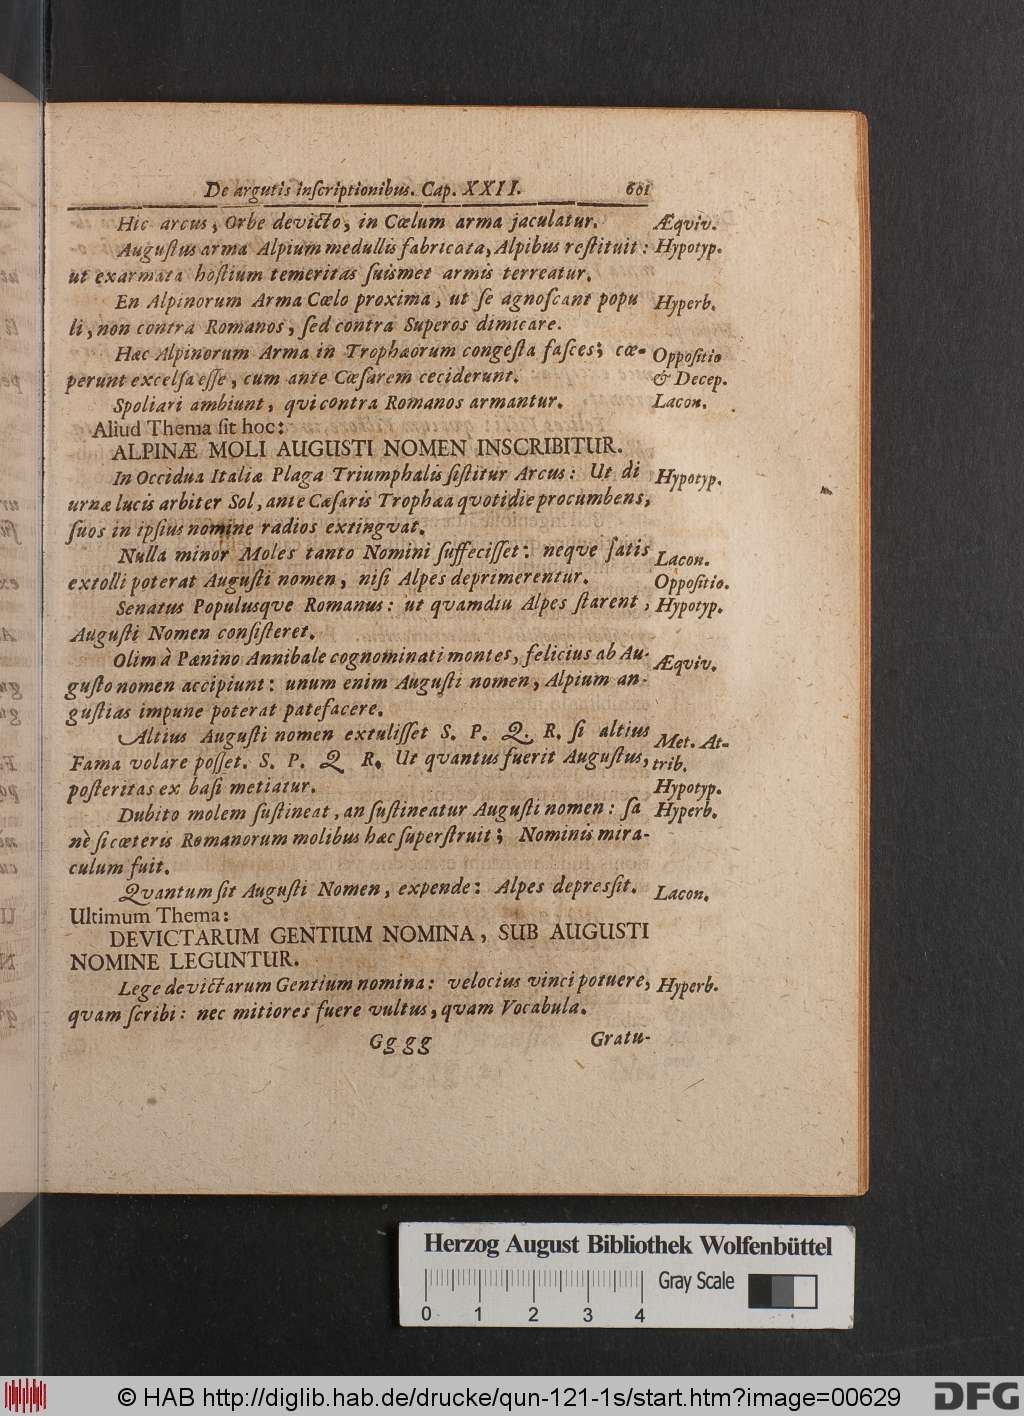 De argutis inſcriptionibus. Cap. XXII. 601
Hic arcus, Orbe devicto, in Cœlum arma jaculatur. Æqviv.
Auguſtus arma Alpium medullis fabricata, Alpibus reſtituit: Hypotyp.
ut exarmata hoſtium temeritas ſuismet armis terreatur.
En Alpinorum Arma Cœlo proxima, ut ſe agnoſcant popu Hyperb.
li, non contra Romanos, ſed contra Superos dimicare.
Hæc Alpinorum Arma in Trophæorum congeſta faſces; cœ- Oppoſitio
perunt excelſa eſſe, cum ante Cæſarem ceciderunt. & Decep.
Spoliari ambiunt, qui contra Romanos armantur. Lacon.
Aliud Thema ſit hoc:
ALPINÆ MOLI AUGUSTI NOMEN INSCRIBITUR.
In Occidua Italiæ Plaga Triumphalis ſiſtitur Arcus: Ut di Hypotyp.
urnæ lucis arbiter Sol, ante Cæſaris Trophæa quotidie procumbens,
ſuos in ipſius nomine radios extingvat.
Nulla minor Moles tanto Nomini ſuffeciſſet: neqve ſatis Lacon.
extolli poterat Auguſti nomen, niſi Alpes deprimerentur. Oppoſitio.
Senatus Populusqve Romanus: ut quamdiu Alpes ſtarent, Hypotyp.
Auguſti Nomen conſiſteret.
Olim à Pænino Annibale cognominati montes, felicius ab Au- Æqviv.
guſto nomen accipiunt: unum enim Auguſti nomen, Alpium an-
guſtias impune poterat patefacere.
Altius Auguſti nomen extuliſſet S. P. Q. R. ſi altius Met. At-
Fama volare poſſet. S. P. Q R. Ut qvantus fuerit Auguſtus, trib.
poſteritas ex baſi metiatur. Hypotyp.
Dubito molem ſuſtineat, an ſuſtineatur Auguſti nomen: ſa Hyperb.
nè ſi cæteris Romanorum molibus hæc ſuperſtruit; Nominis mira-
culum fuit.
Qvantum ſit Auguſti Nomen, expende: Alpes depreſſit. Lacon.
Ultimum Thema:
DEVICTARUM GENTIUM NOMINA, SUB AUGUSTI
NOMINE LEGUNTUR.
Lege devictarum Gentium nomina: velocius vinci potuere, Hyperb.
qvam ſcribi: nec mitiores fuere vultus, qvam Vocabula.
Gg gg Gratu-
Herzog August Bibliothek Wolfenbüttel
Gray Scale
0 1 2 3 4
© HAB http://diglib.hab.de/drucke/qun-121-1s/start.htm?image=00629 DFG